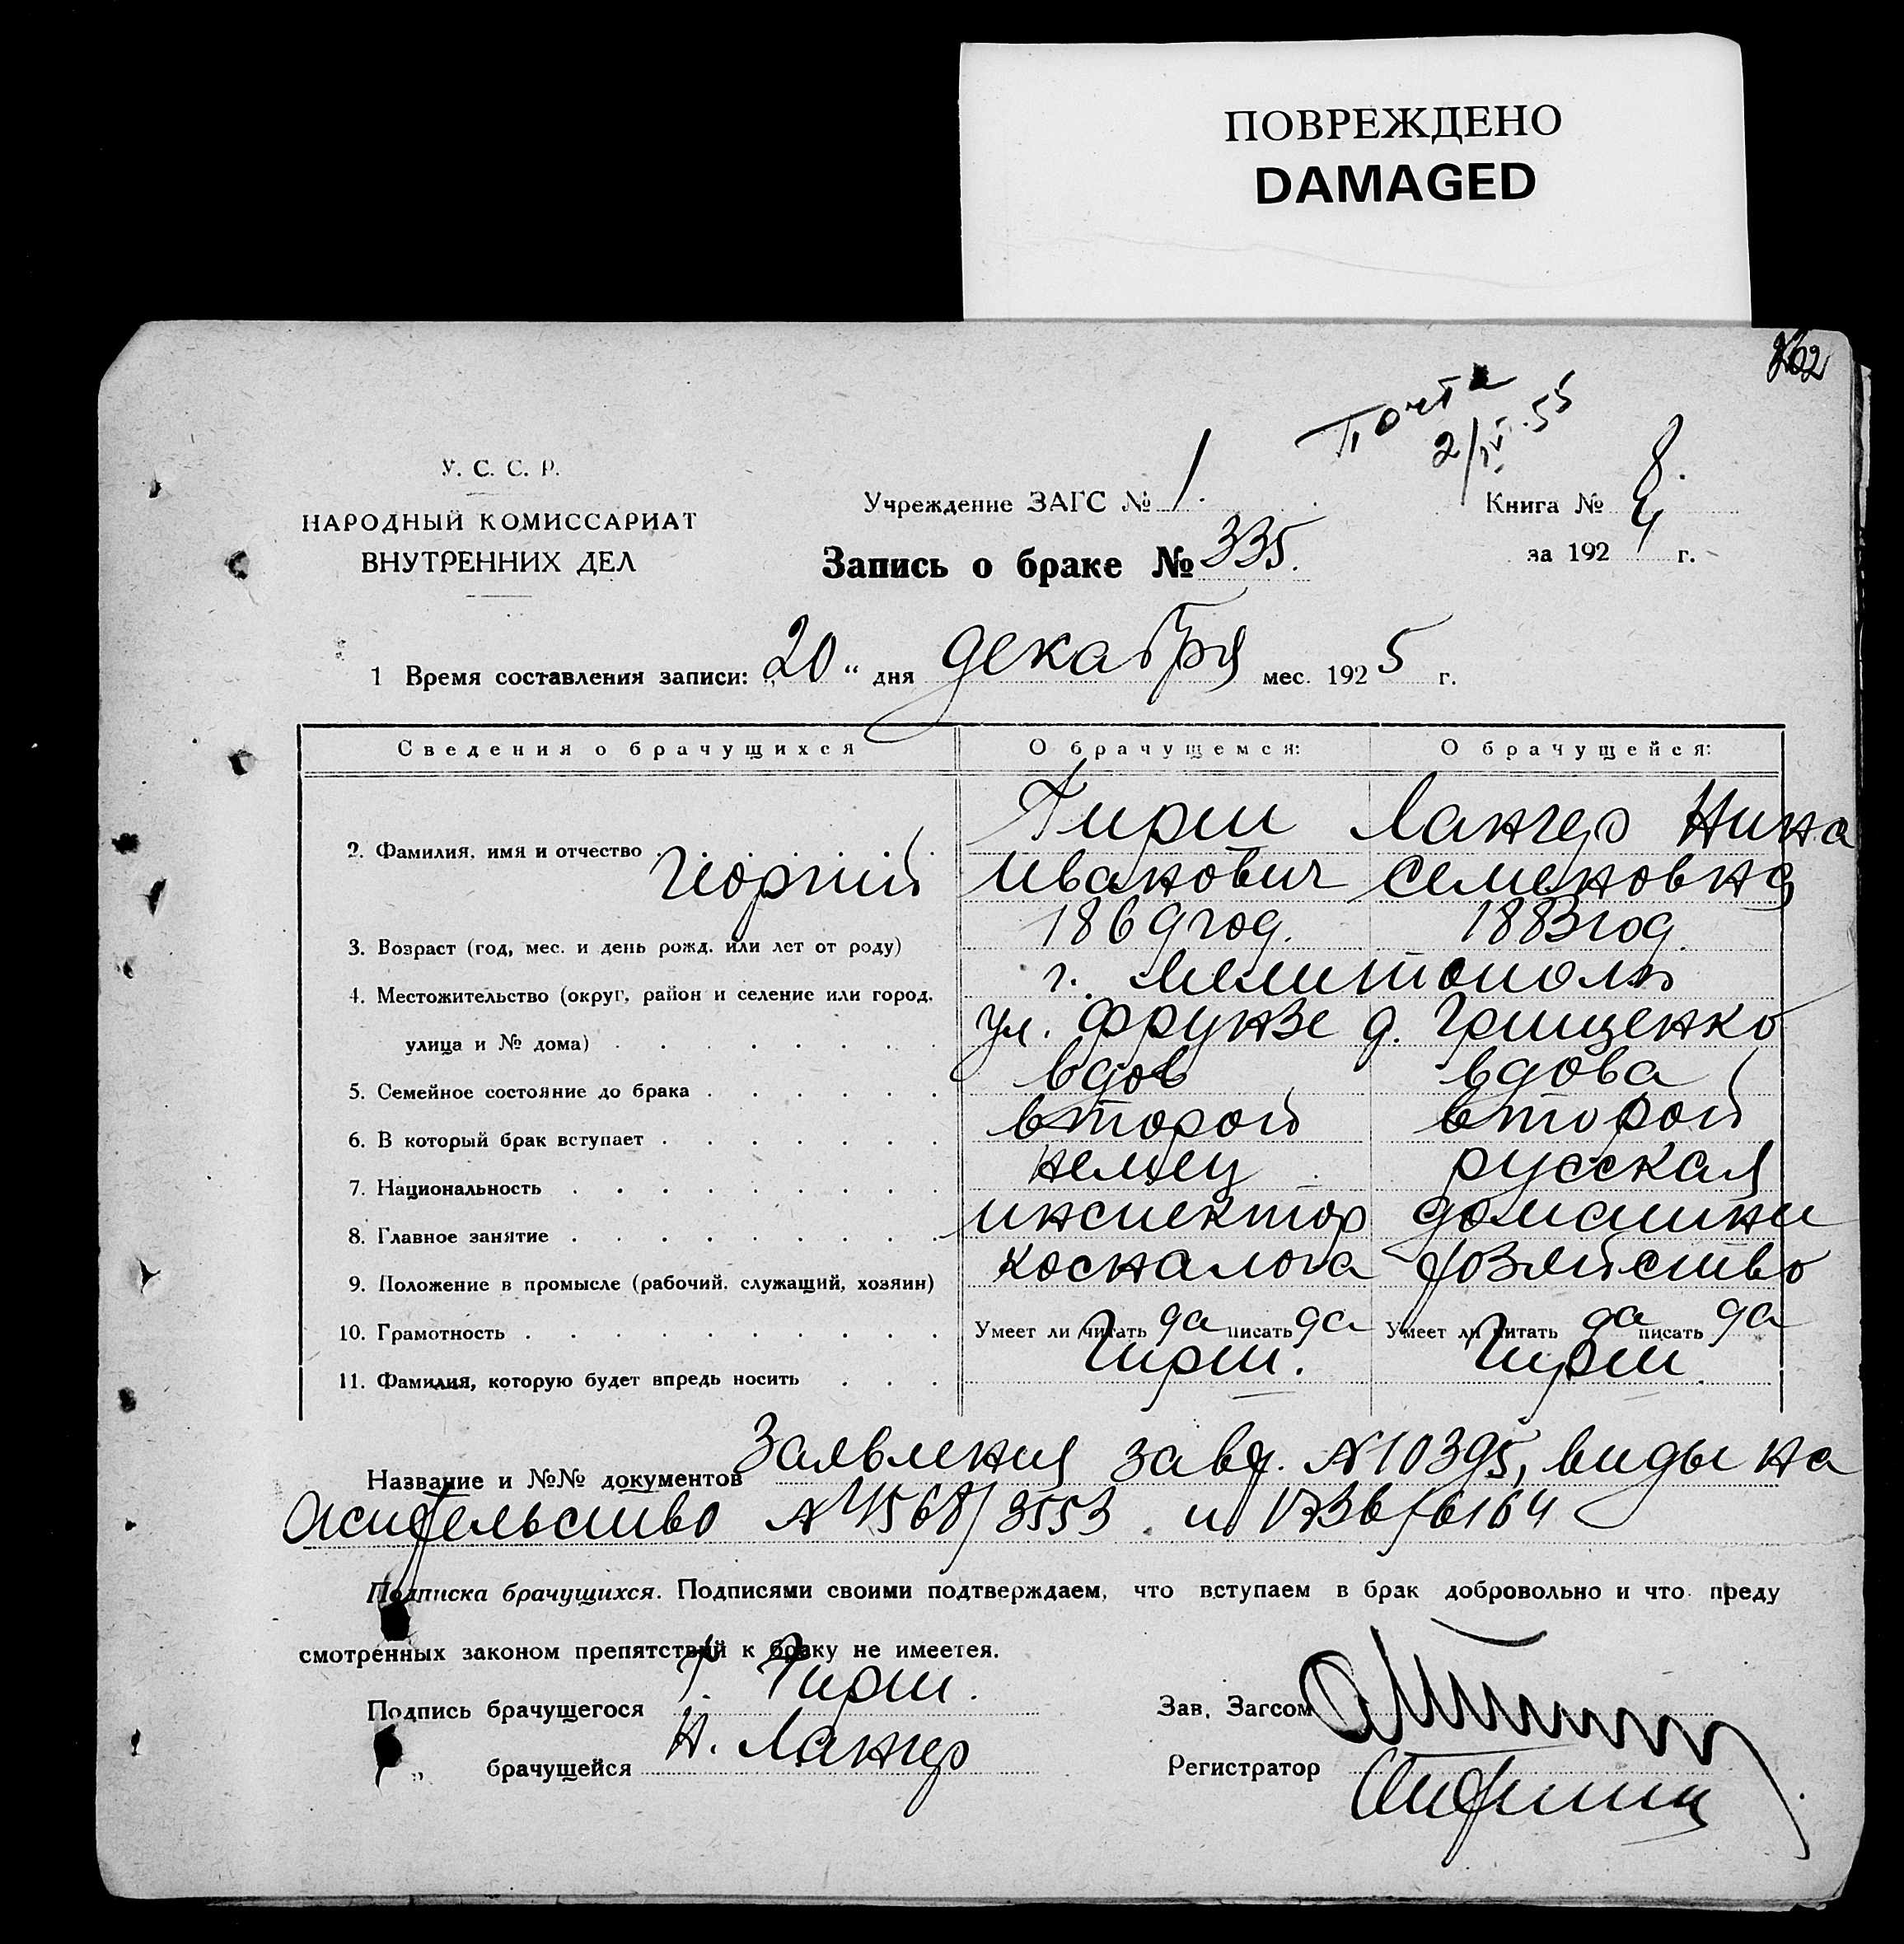 ПОВРЕЖДЕНО
DAMAGED
262
Почта
2/IV.55
У. С. С. Р.
НАРОДНЫЙ КОМИССАРИАТ
ВНУТРЕННИХ ДЕЛ
Учреждение ЗАГС № 1.
Книга № 8.
за 192 г.
Запись о браке № 335.
1 Время составления записи: „20“ дня декабря мес. 1925 г.
Сведения о брачущихся О брачущемся: О брачущейся:
2. Фамилия, имя и отчество Гирш Лангер Нина
Георгий Иванович Семеновна
3. Возраст (год, мес. и день рожд. или лет от роду) 1869 год. 1883 год.
4. Местожительство (округ, район и селение или город, г. Мелитополь
улица и № дома) ул. Фрунзе д. Грищенко
5. Семейное состояние до брака вдов вдова
6. В который брак вступает второй второй
7. Национальность немец русская
8. Главное занятие инспектор домашнее
9. Положение в промысле (рабочий, служащий, хозяин) косналога хозяйство
10. Грамотность Умеет ли читать да писать да Умеет ли читать да писать да
11. Фамилия, которую будет впредь носить Гирш. Гирш.
Название и №№ документов Заявления за вх. № 10395, виды на
жительство № 4568/3553 и 1736/6164
Подписка брачущихся. Подписями своими подтверждаем, что вступаем в брак добровольно и что преду
смотренных законом препятствий к браку не имеется.
Подпись брачущегося Г. Гирш.
„ брачущейся Н. Лангер
Зав. Загсом
Регистратор